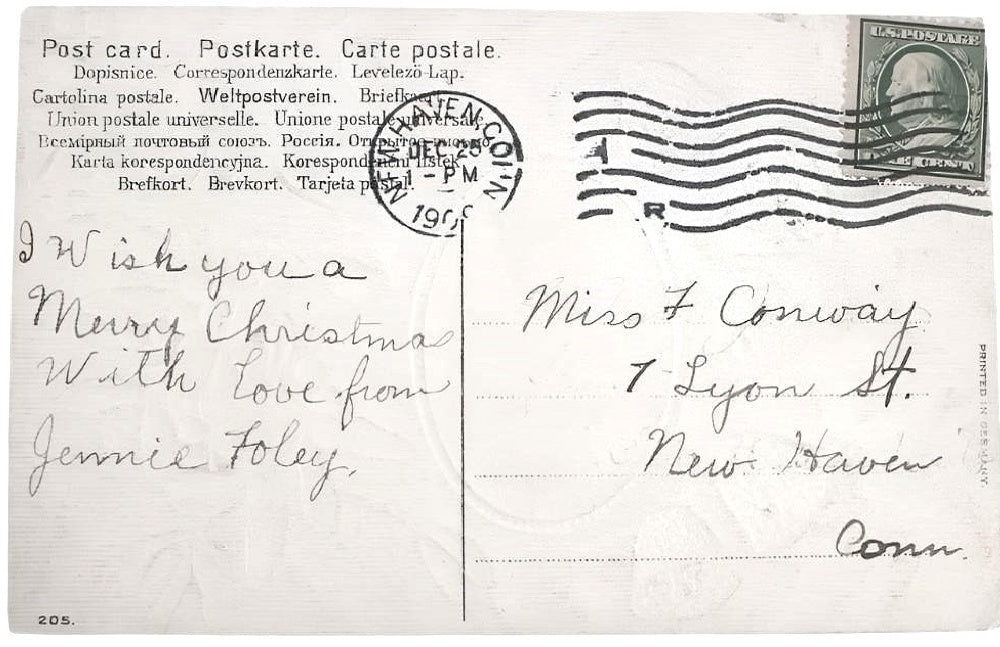 Post card. Postkarte. Carte postale.
Dopisnice. Correspondenzkarte. Levelező-Lap.
Cartolina postale. Weltpostverein. Briefkaart.
Union postale universelle. Unione postale universale.
Всемірный почтовый союзъ. Россія. Открытое письмо.
Karta korespondencyjna. Korespondenční lístek.
Brefkort. Brevkort. Tarjeta postal.
NEW HAVEN, CONN
DEC 25
1 - PM
U.S. POSTAGE
ONE CENT
R
I Wish you a
Merry Christmas
With Love from
Jennie Foley.
Miss F Conway
7 Lyon St.
New Haven
Conn.
PRINTED IN GERMANY
205.